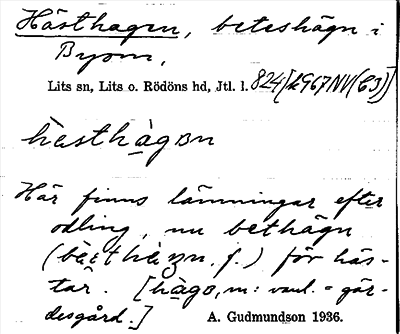 Hästhagen, beteshägn i
Byom,
Lits sn, Lits o. Rödöns hd, Jtl. l. 824 [k967NV(C3)]
hästhàgɘn
Här finns lämningar efter
odling, nu bethägn
f.) för häs-
tar. [hàgo, m: vanl. = gär-
desgård.]
A. Gudmundson 1936.